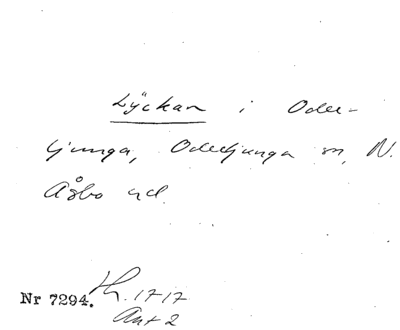 Lÿckan i Oder-
ljunga, Oderljunga sn, N.
Åsbo hd.
Nr 7294. H. 1717
Ant 2